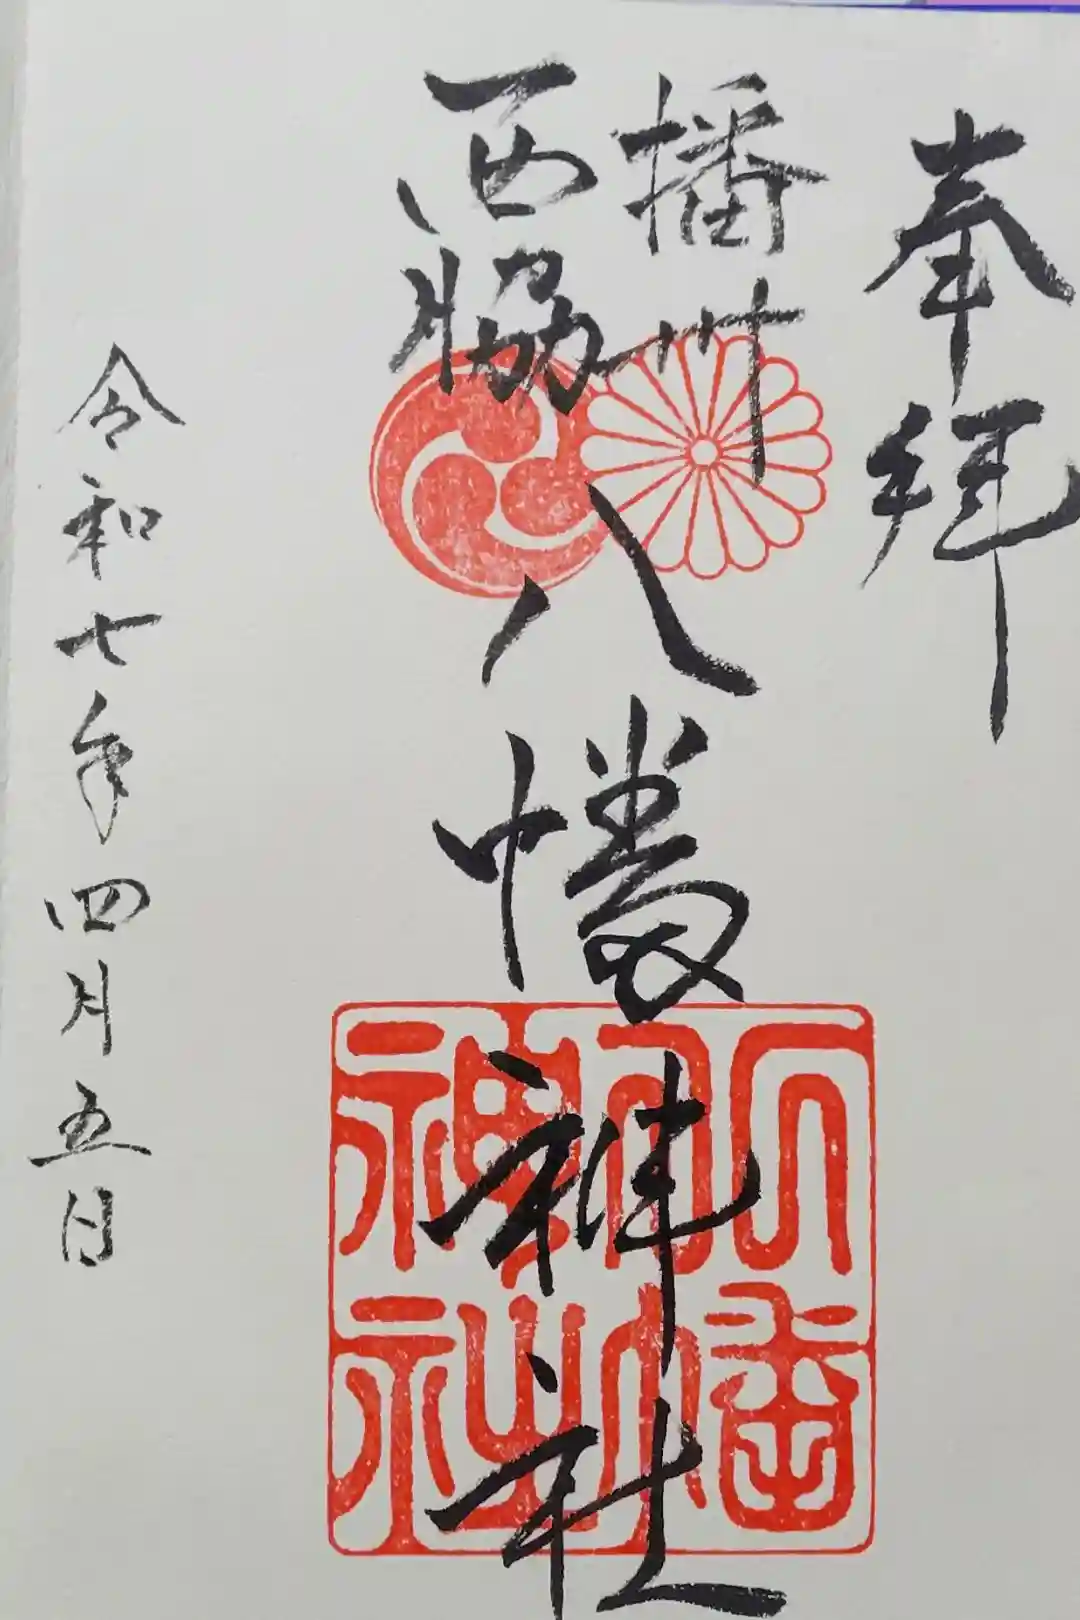 奉拝
播州
西脇
八幡神社
八幡神社
令和七年四月五日